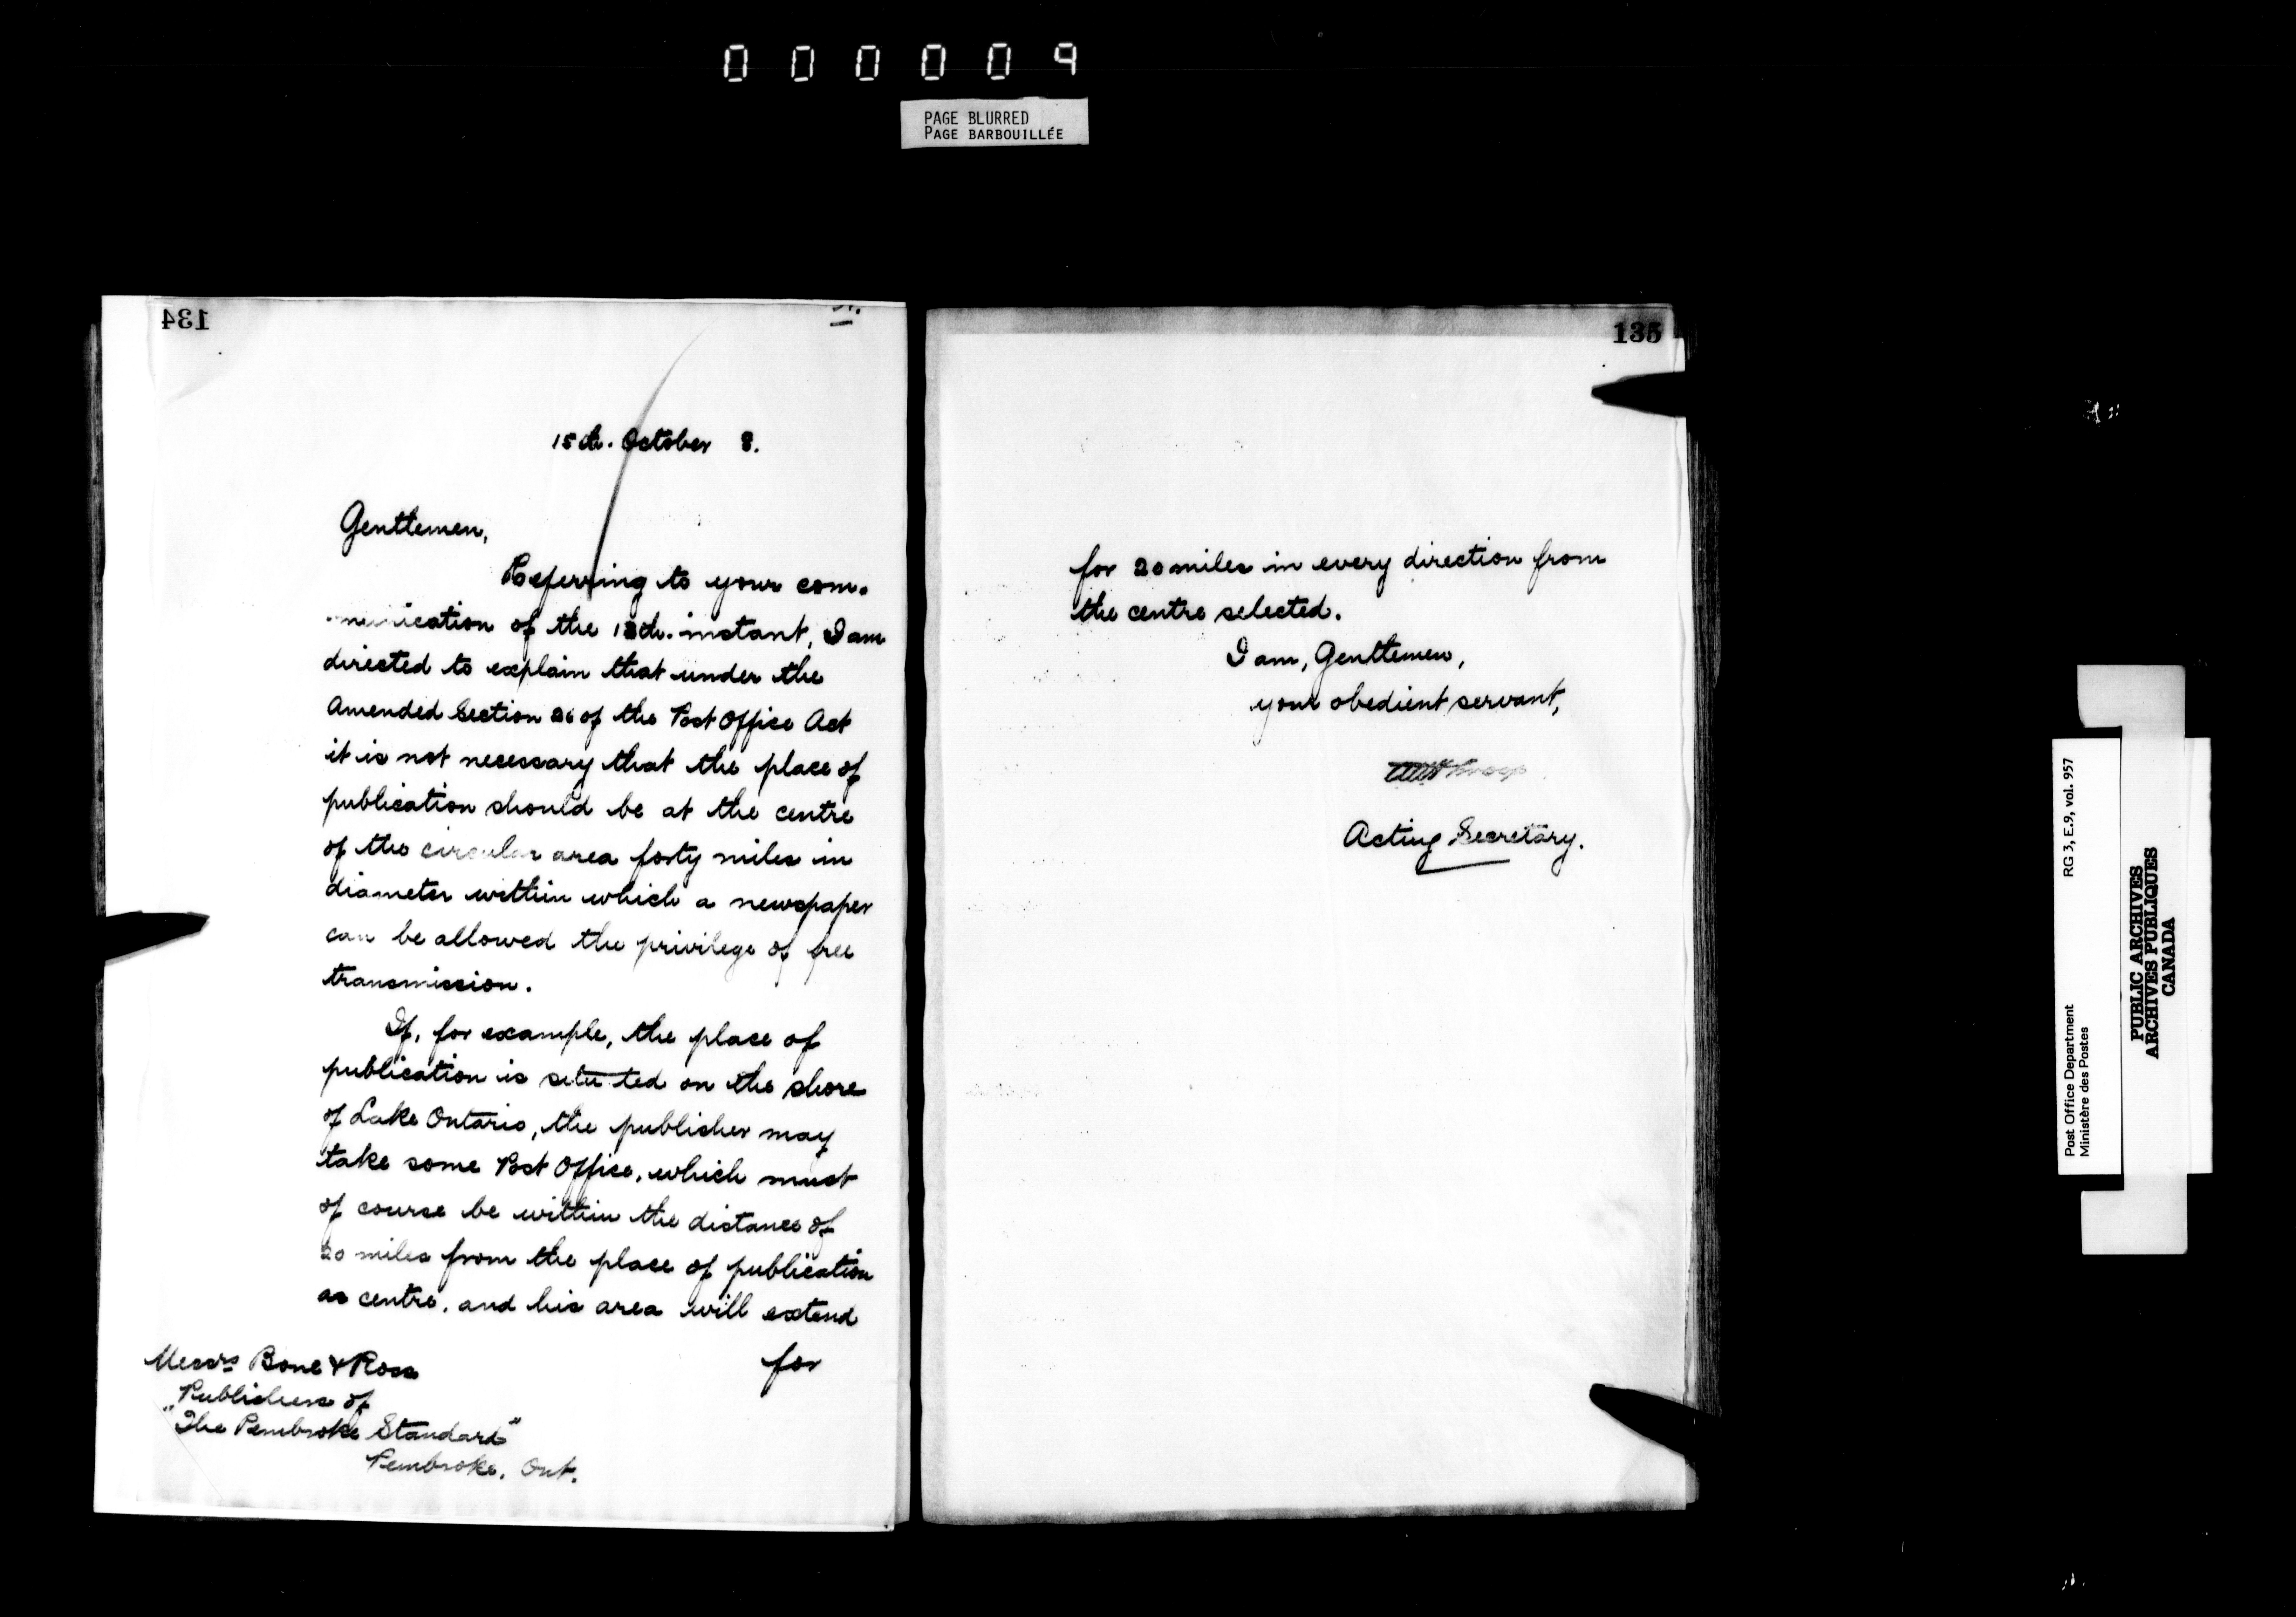 000009
PAGE BLURRED
PAGE BARBOUILLÉE
134
15th. October 8.
Gentlemen,
Referring to your com-
munication of the 13th. instant, I am
directed to explain that under the
Amended Section 26 of the Post Office Act
it is not necessary that the place of
publication should be at the centre
of the circular area forty miles in
diameter within which a newspaper
can be allowed the privilege of free
transmission.
If, for example, the place of
publication is situated on the shore
of Lake Ontario, the publisher may
take some Post Office, which must
of course be within the distance of
20 miles from the place of publication
as centre, and his area will extend
for
Messrs Bone & Ross
Publishers of
"The Pembroke Standard"
Pembroke, Ont.
135
for 20 miles in every direction from
the centre selected.
I am, Gentlemen,
your obedient servant,
Acting Secretary.
Post Office Department
Ministère des Postes
RG 3, E.9, vol. 957
PUBLIC ARCHIVES
ARCHIVES PUBLIQUES
CANADA